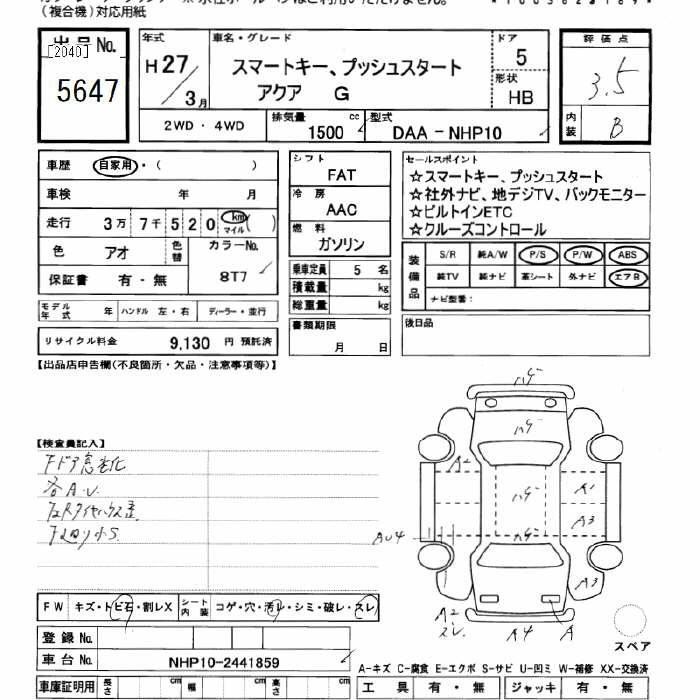 (複合機)対応用紙
出品No.
[2040]
5647
年式
H 27
3月
車名・グレード
スマートキー、プッシュスタート
アクア G
ドア
5
形状
HB
評価点
3.5
内装
B
2WD・4WD
排気量
1500 cc
型式
DAA-NHP10
車歴 自家用・( )
車検 年 月
走行 3万 7千 5 2 0 km マイル ( )
色 アオ 色替 カラーNo.
8T7
保証書 有・無
モデル年式 年 ハンドル 左・右 ディーラー・並行
リサイクル料金 9,130 円 預託済
シフト
FAT
冷房
AAC
燃料
ガソリン
乗車定員 5 名
積載量 kg
総重量 kg
書類期限
月 日
セールスポイント
☆スマートキー、プッシュスタート
☆社外ナビ、地デジTV、バックモニター
☆ビルトインETC
☆クルーズコントロール
装備品
S/R 純A/W P/S P/W ABS
純TV 純ナビ 革シート 外ナビ エアB
ナビ型番:
後日品
【出品店申告欄(不良箇所・欠品・注意事項等)】
【検査員記入】
各A.U.
ハゲ
ハゲ
ハゲ
ハゲ
A2
A1
A3
AU4
A3
A2
スレ
A4
A
スペア
FW キズ・トビ石・割レX シート内装 コゲ・穴・汚レ・シミ・破レ・スレ
登録No.
車台No. NHP10-2441859
車庫証明用 長さ cm 幅 cm 高さ cm
A-キズ C-腐食 E-エクボ S-サビ U-凹ミ W-補修 XX-交換済
工具 有・無 ジャッキ 有・無